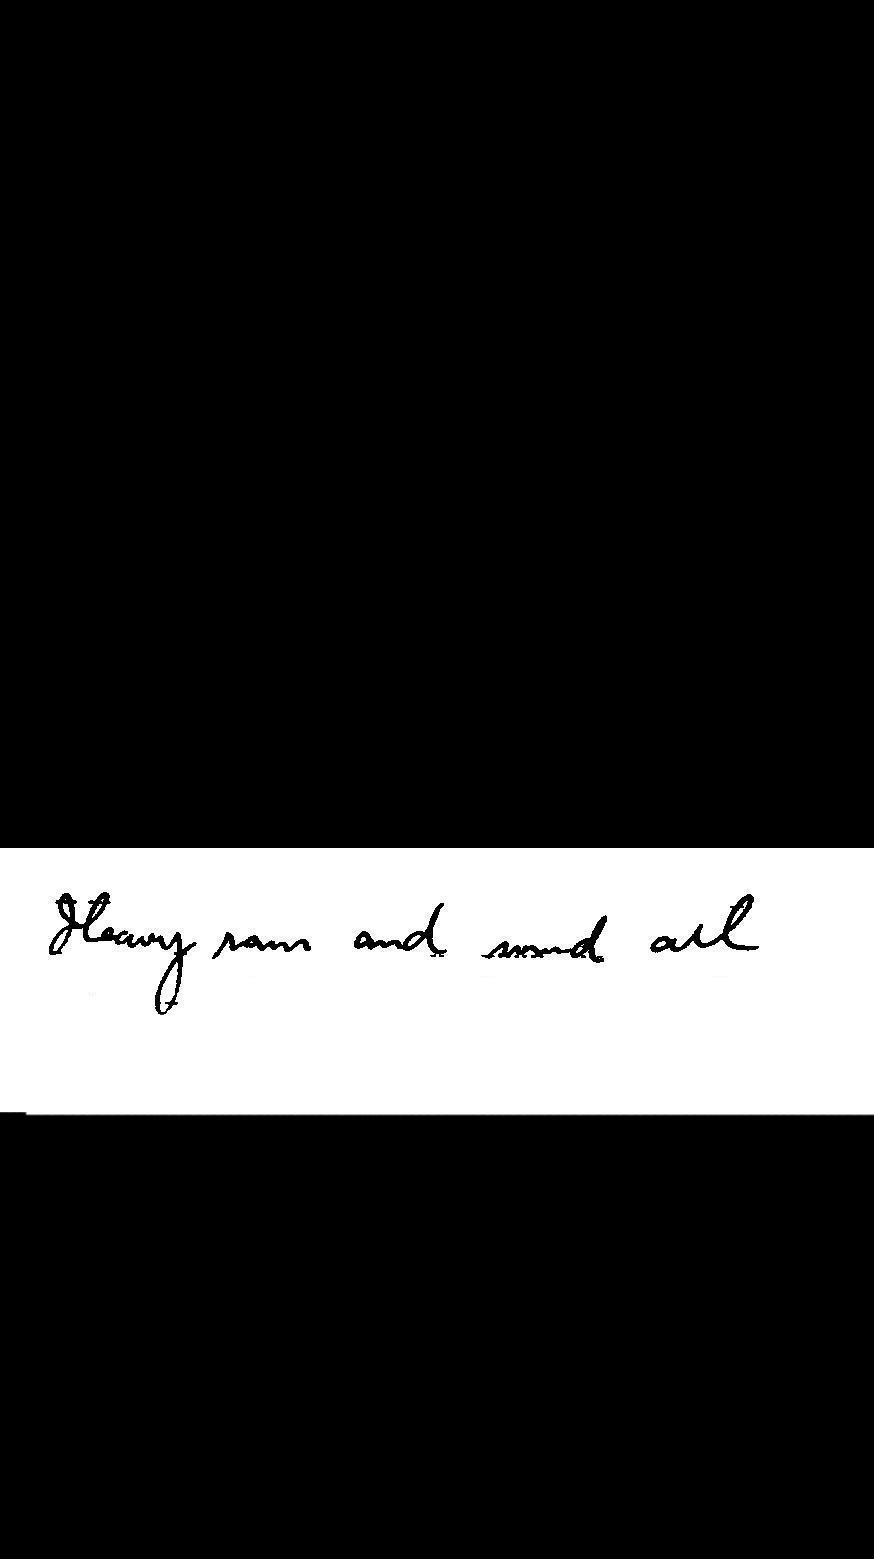 Heavy rain and wind all